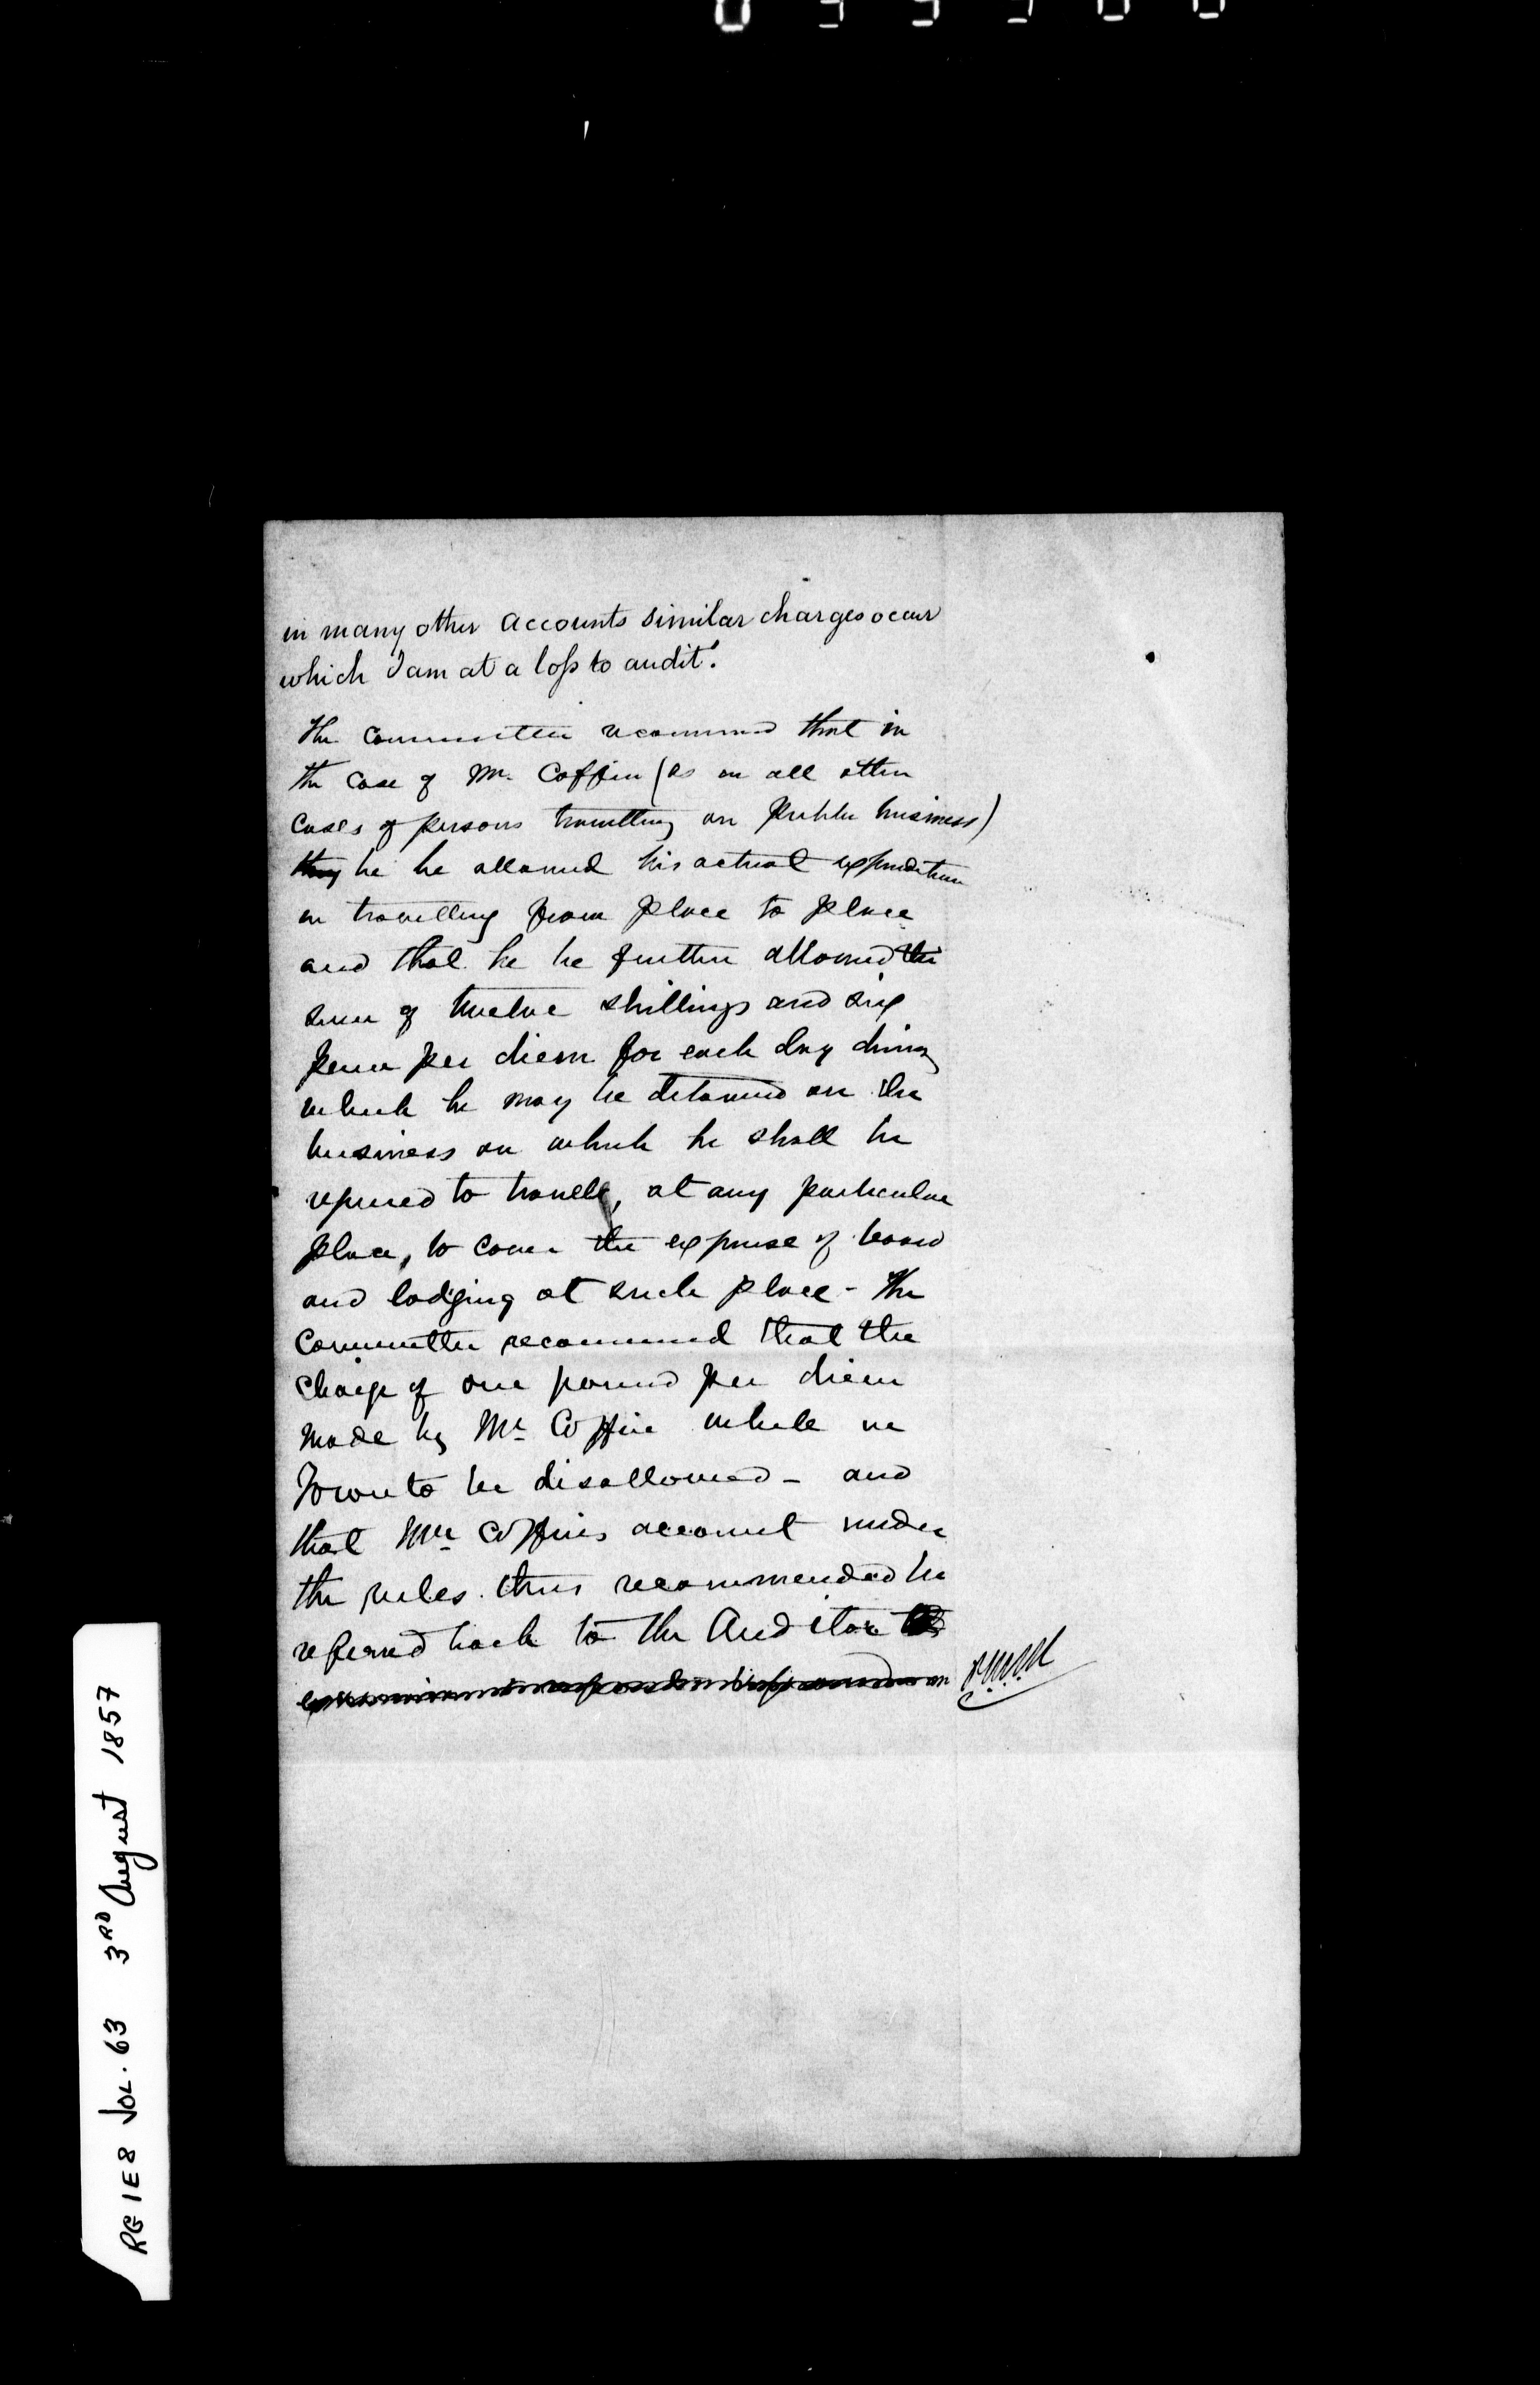 in many other accounts similar charges occur
which I am at a loss to audit."
The Committee recommend that in
the case of Mr. Coffin (as in all other
cases of persons travelling on public business)
they he be allowed his actual expenditure
in travelling from place to place
and that he be further allowed the
sum of twelve shillings and six
pence per diem for each day during
which he may be detained on the
business on which he shall be
required to travell, at any particular
place, to cover the expense of board
and lodging at such place - The
Committee recommend that the
charge of one pound per diem
made by Mr Coffin while in
Toronto be disallowed - and
that Mr Coffins account under
the rules thus recommended be
referred back to the Auditor
RG 1 E 8 VOL. 63 3RD August 1857